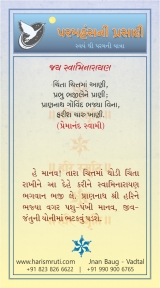 પરમહંસની પ્રસાદી
જય સ્વામિનારાયણ
ચિંતા ચિત્તમાં આણી,
પ્રભુ ભજીલેને પ્રાણી;
પ્રાણનાથ ગોવિંદ ભજ્યા વિના,
ફરીશ ચારુ ખાણી.
(પ્રેમાનંદ સ્વામી)
હે માનવ! તારા ચિત્તમાં થોડી ચિંતા
રાખીને આ દેહે કરીને સ્વામિનારાયણ
ભગવાન ભજી લે. પ્રાણનાથ શ્રી હરિને
ભજ્યા વગર પશુ-પંખી માનવ, જીવ-
જંતુની યોનીમાં ભટકવું પડશે.
www.harismruti.com
Jnan Baug - Vadtal
+91 823 826 6622
+91 990 900 6765